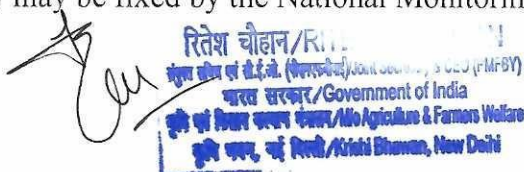 may be fixed by the National Monitorin
रितेश चौहान/RI
संयुक्त सचिव एवं सी.ई.ओ. Joint & CEO (PMFBY)
भारत सरकार/Government of India
कृषि एवं किसान कल्याण मंत्रालय/M/o Agriculture & Farmers Welfare
कृषि भवन, नई दिल्ली/Krishi Bhawan, New Delhi